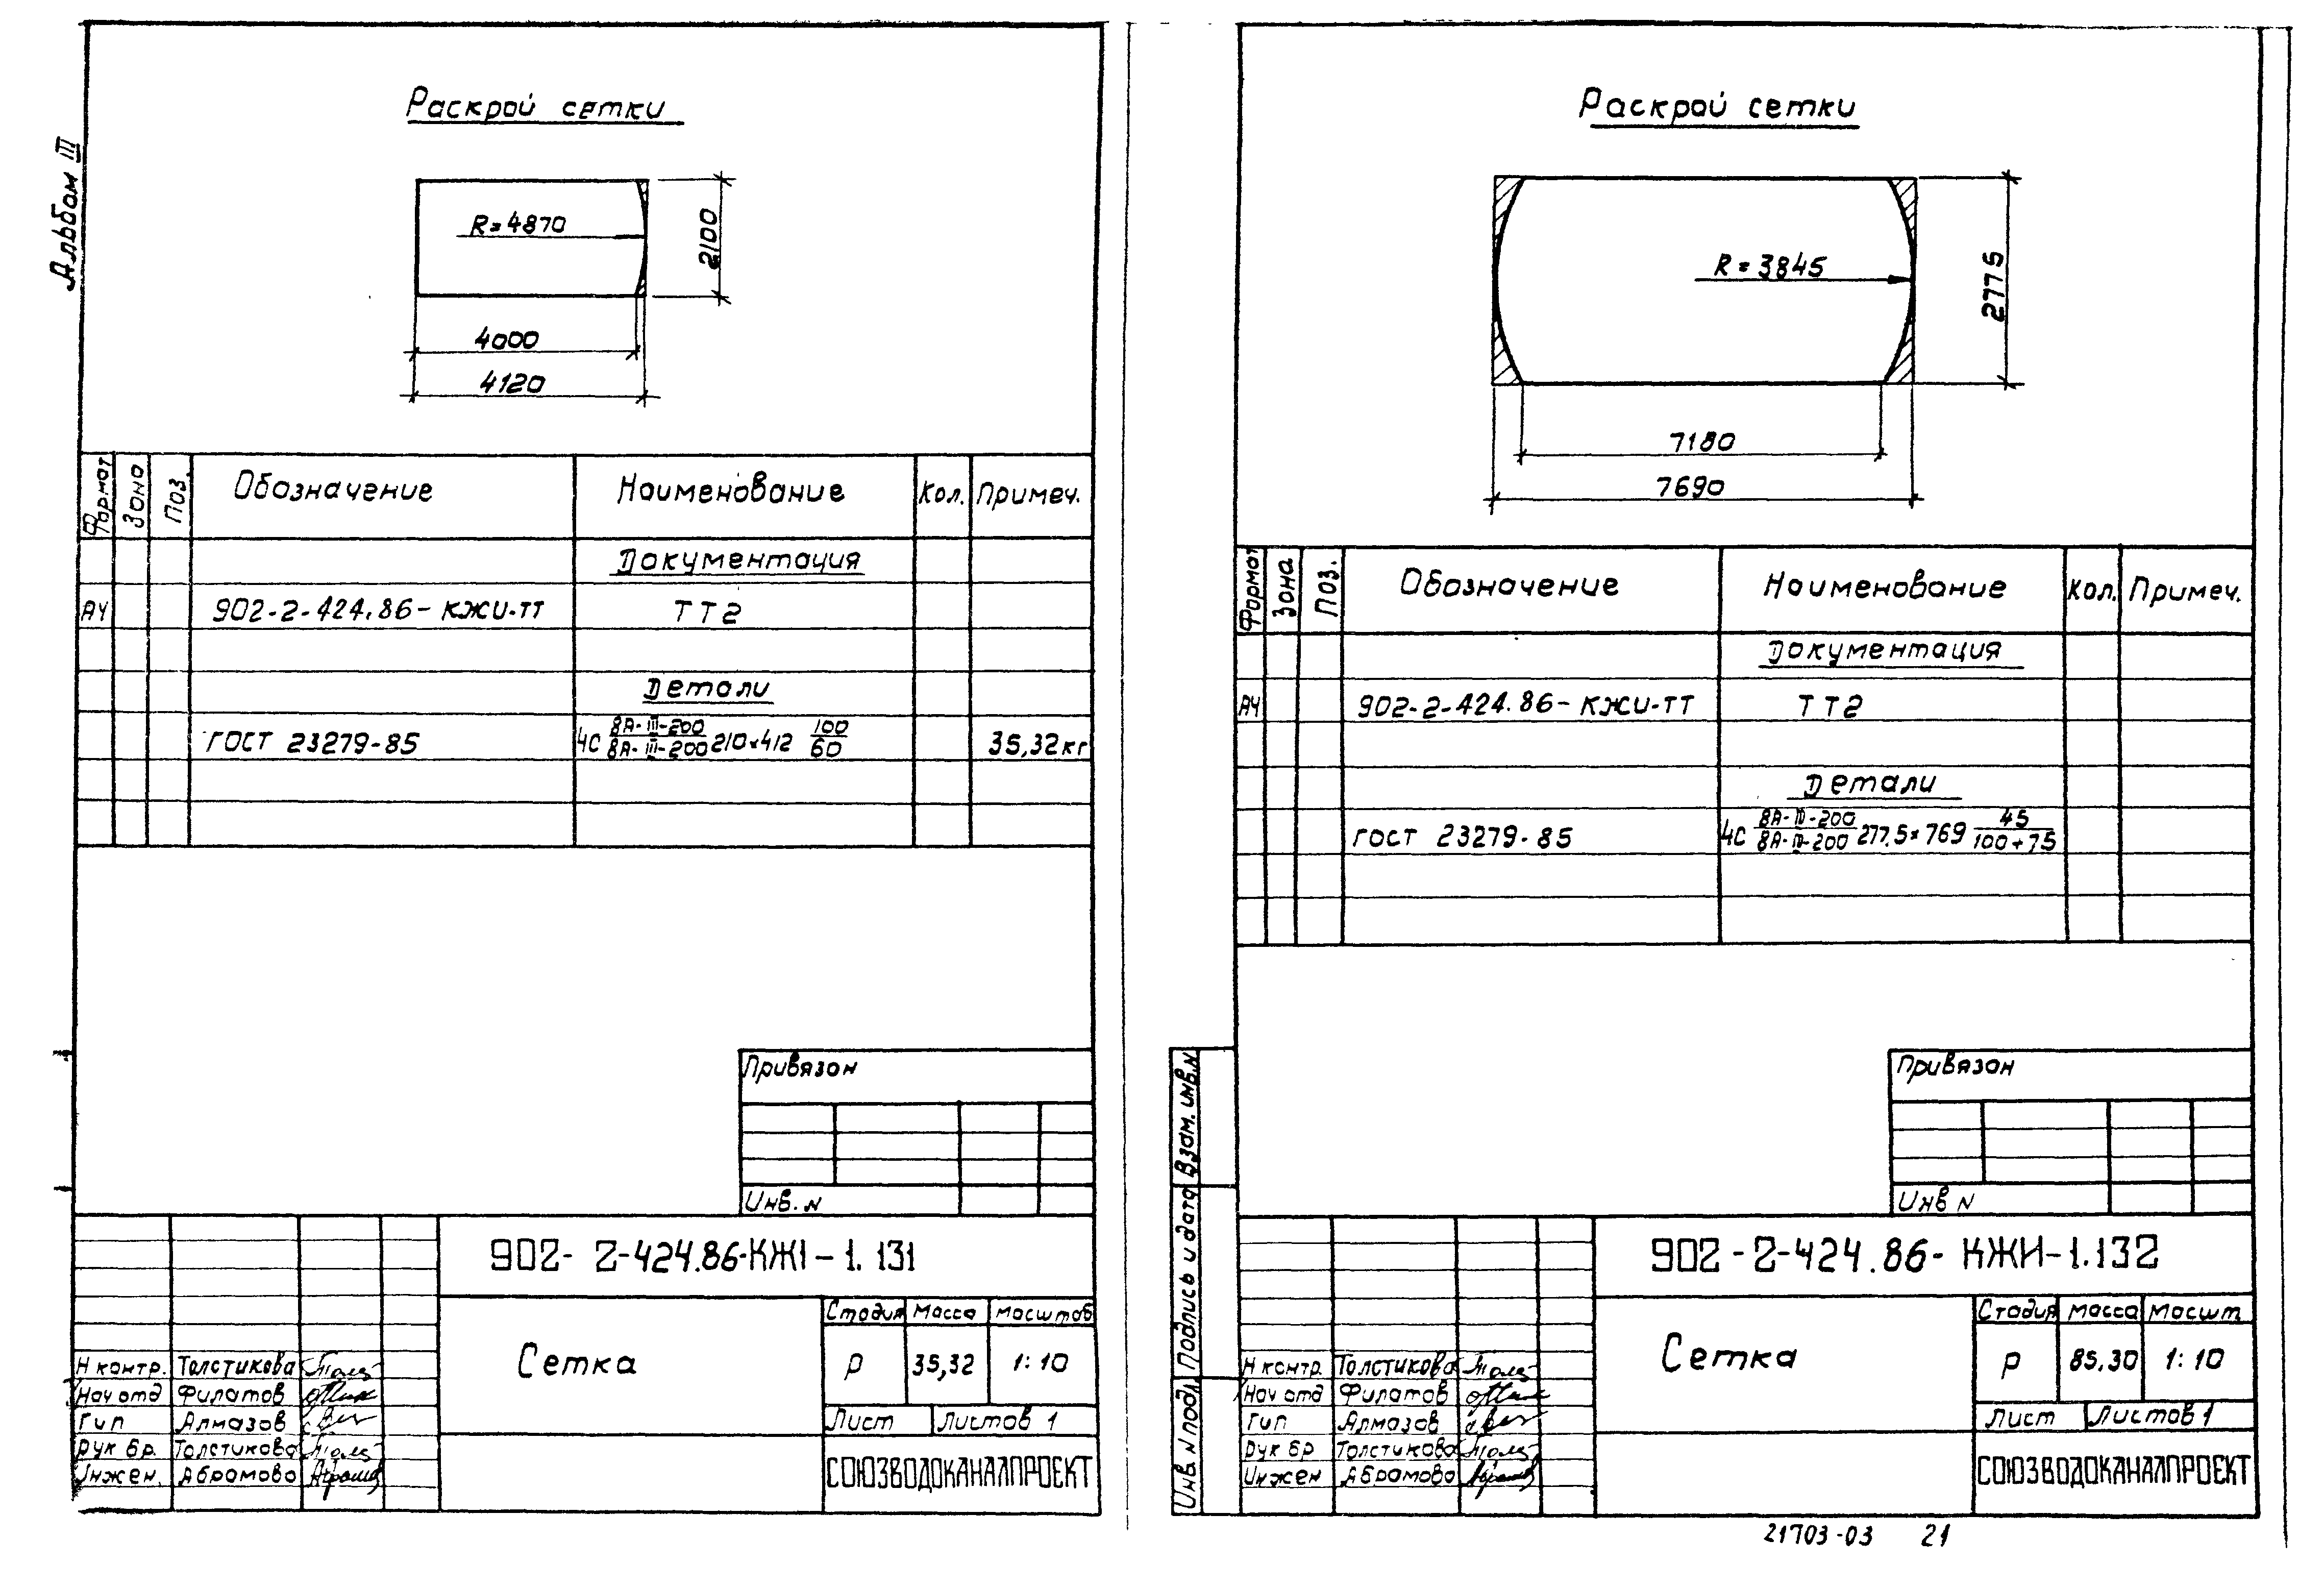 Альбом III
Раскрой сетки
R=4870
2100
4000
4120
Формат Зона Поз. Обозначение Наименование Кол. Примеч.
Документация
А4 902-2-424.86-КЖИ-ТТ ТТ2
Детали
ГОСТ 23279-85 4С 8А-III-200/8А-III-200 210×412 100/60 35,32кг
Привязан
Инв. N
902-2-424.86-КЖІ-1.131
Сетка
Стадия Масса Масштаб
Р 35,32 1:10
Лист Листов 1
СОЮЗВОДОКАНАЛПРОЕКТ
Н контр. Толстикова
Нач отд Филатов
Гип Алмазов
Рук бр. Толстикова
Инжен. Абрамова
Раскрой сетки
R=3845
2775
7180
7690
Формат Зона Поз. Обозначение Наименование Кол. Примеч.
Документация
А4 902-2-424.86-КЖИ-ТТ ТТ2
Детали
ГОСТ 23279-85 4С 8А-III-200/8А-III-200 277.5×769 45/100+75
Привязан
Инв N
Взам. инв. N
Подпись и дата
Инв. N подл.
902-2-424.86-КЖИ-1.132
Сетка
Стадия Масса Масшт.
Р 85.30 1:10
Лист Листов 1
СОЮЗВОДОКАНАЛПРОЕКТ
Н контр. Толстикова
Нач отд Филатов
Гип Алмазов
Рук бр Толстикова
Инжен Абрамова
21703-03 21